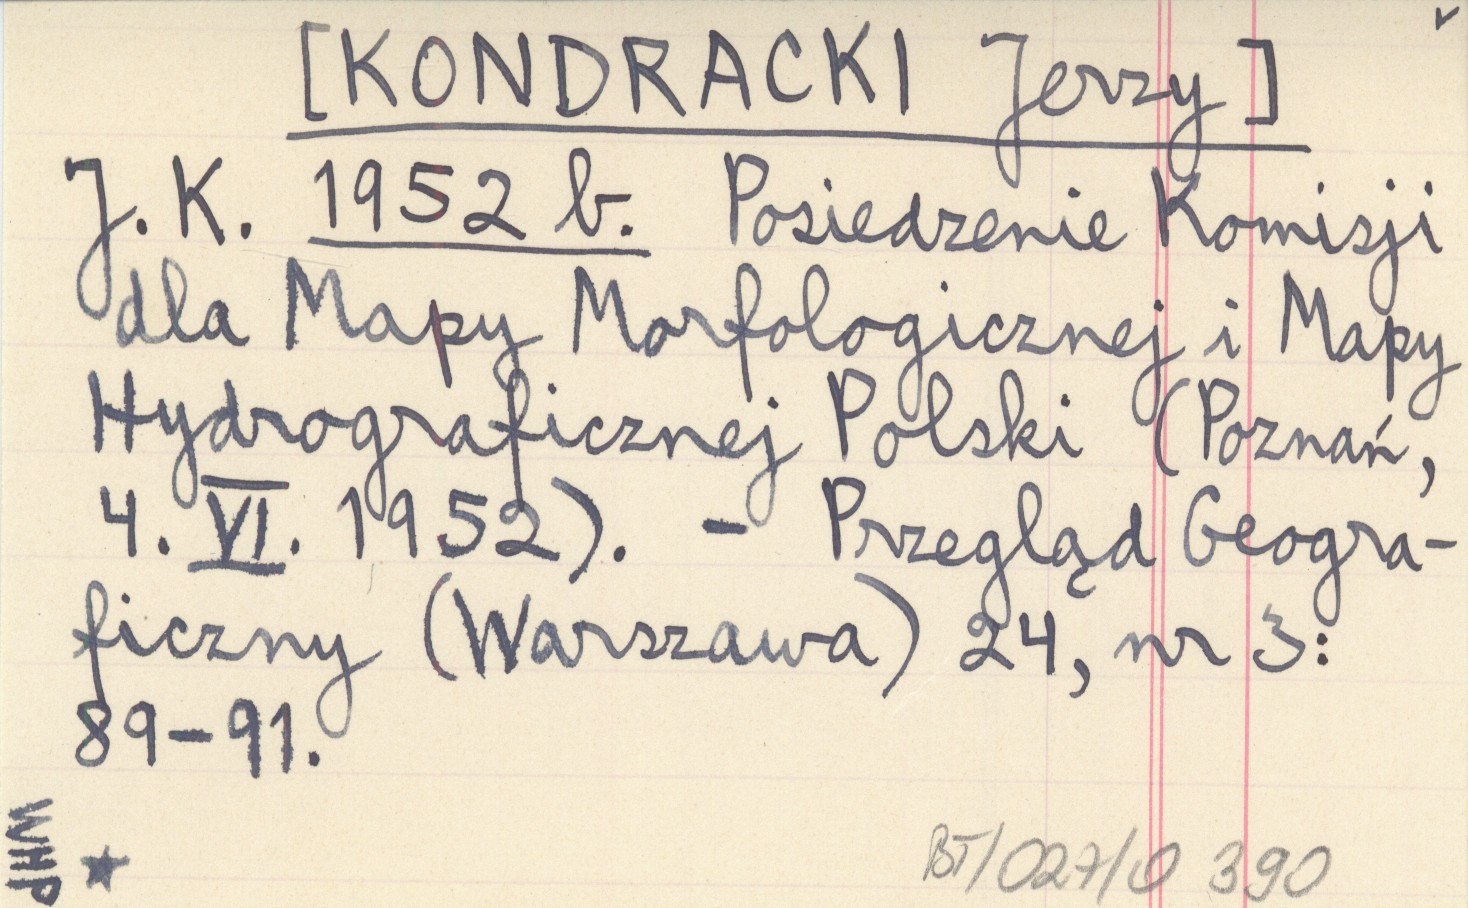 [KONDRACKI Jerzy]
J. K. 1952 b. Posiedzenie Komisji
dla Mapy Morfologicznej i Mapy
Hydrograficznej Polski (Poznań,
4. VI. 1952). - Przegląd Geogra-
ficzny (Warszawa) 24, nr 3:
89-91.
WHP
BT/027/0 390